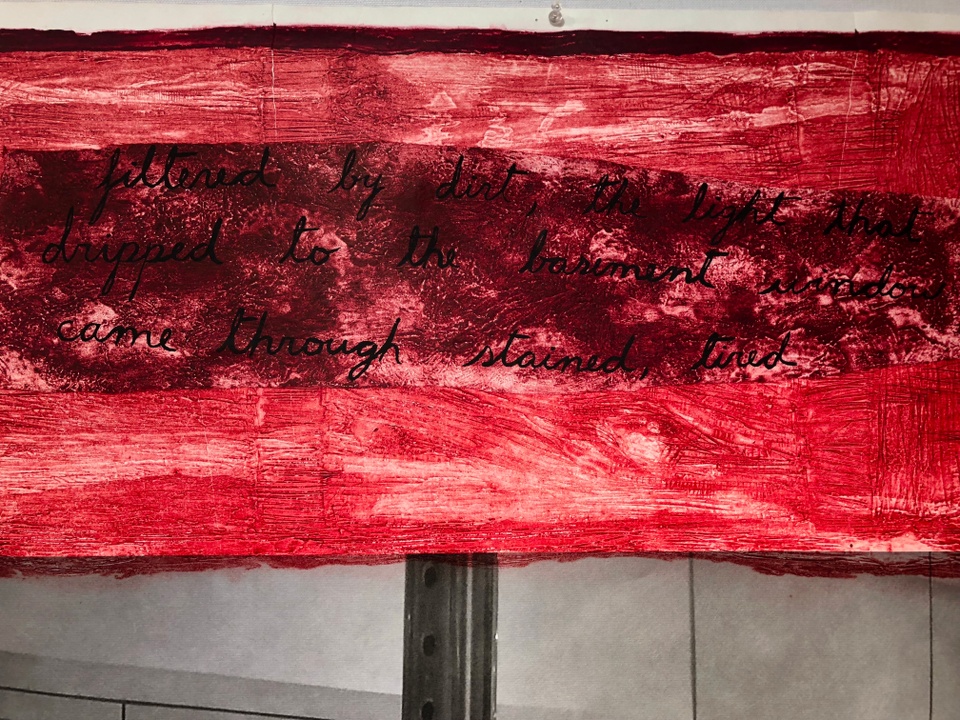 filtered by dirt, the light that
dripped to the basement window
came through stained, tired